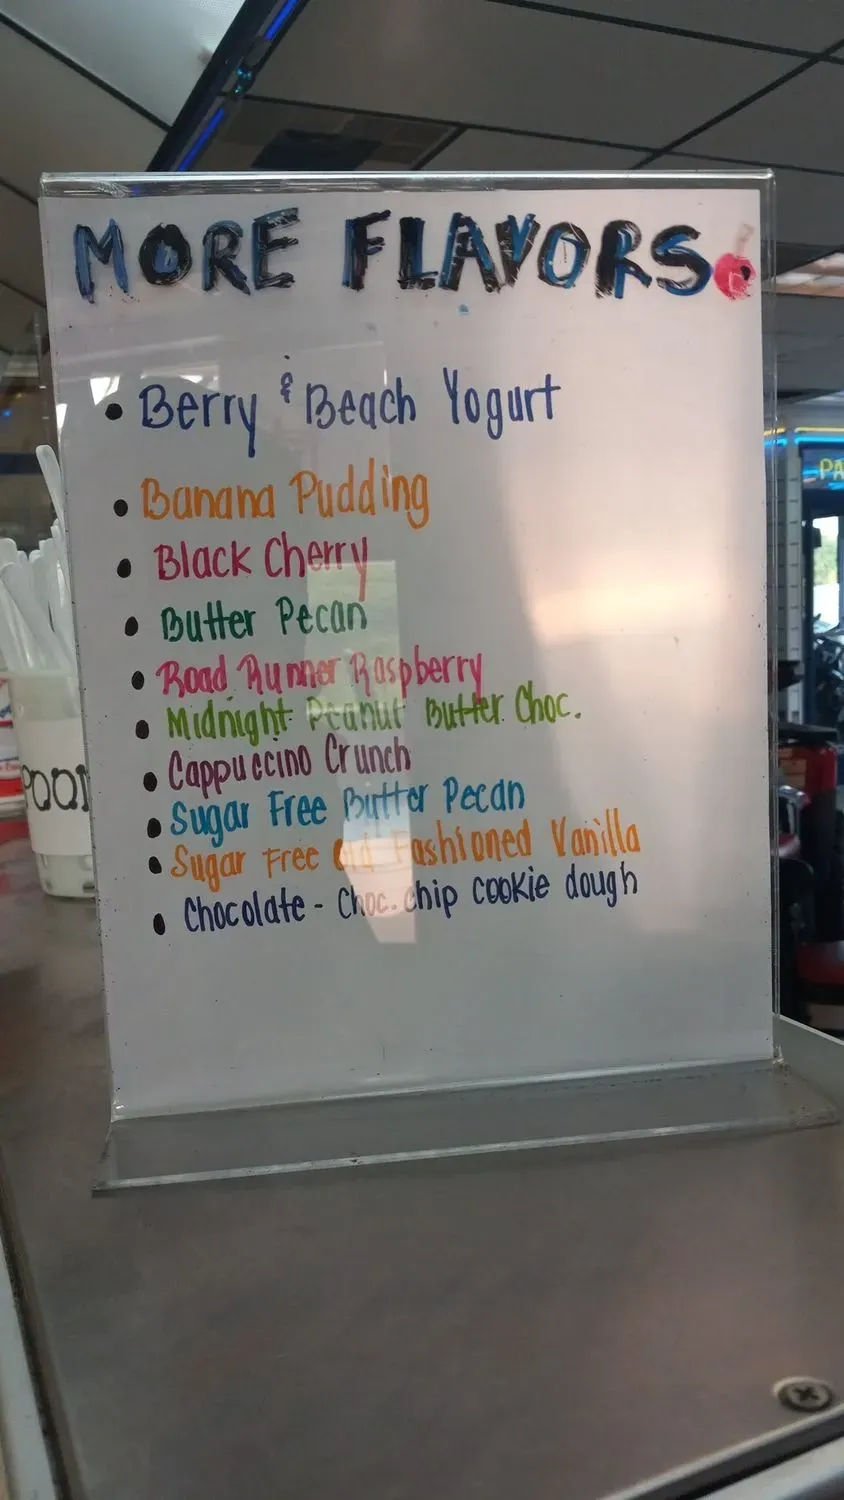 MORE FLAVORS
• Berry & Beach Yogurt
• Banana Pudding
• Black Cherry
• Butter Pecan
• Road Runner Raspberry
• Midnight Peanut Butter Choc.
• Cappuccino Crunch
• Sugar Free Butter Pecan
• Sugar Free Old Fashioned Vanilla
• Chocolate - Choc. chip cookie dough
POON
PA